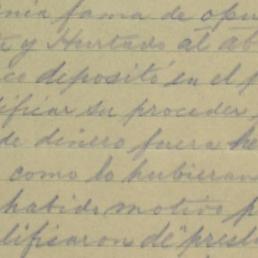 fama de opu
y Hurtado al ab
depositó en el p
ificar su proceder
de dinero fuera he
como lo hubieran
habido motivo p
lificaron de "prest